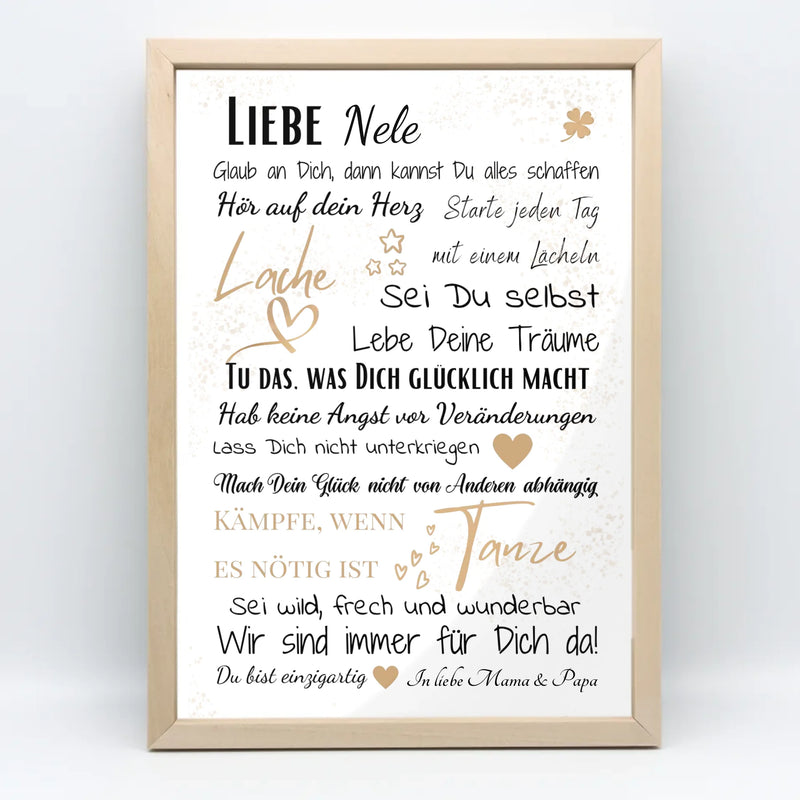 LIEBE Nele
Glaub an Dich, dann kannst Du alles schaffen
Hör auf dein Herz
Starte jeden Tag
mit einem Lächeln
Lache
Sei Du selbst
Lebe Deine Träume
TU DAS, WAS DICH GLÜCKLICH MACHT
Hab keine Angst vor Veränderungen
Lass Dich nicht unterkriegen
Mach Dein Glück nicht von Anderen abhängig
KÄMPFE, WENN
ES NÖTIG IST
Tanze
Sei wild, frech und wunderbar
Wir sind immer für Dich da!
Du bist einzigartig
In liebe Mama & Papa